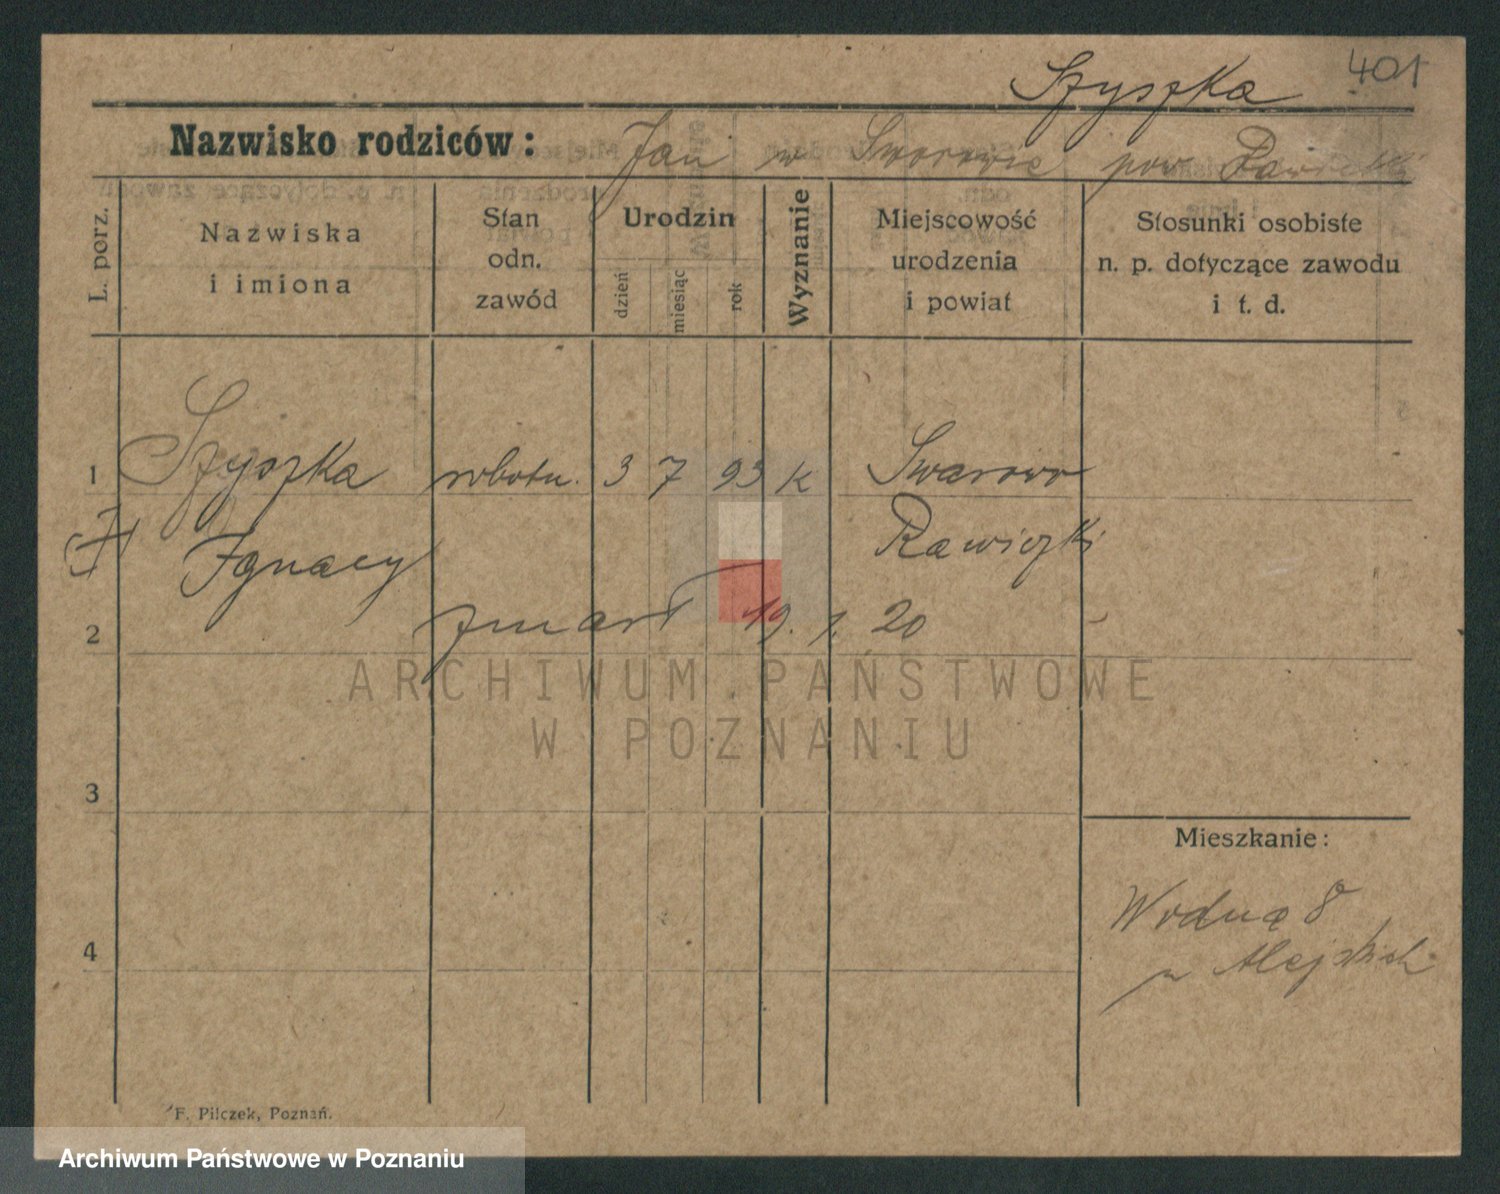 Szyszka 401
Nazwisko rodziców: Jan w Sworowie pow. Rawicki
L. porz.
Nazwiska
i imiona
Stan
odn.
zawód
Urodzin
dzień
miesiąc
rok
Wyznanie
Miejscowość
urodzenia
i powiat
Stosunki osobiste
n. p. dotyczące zawodu
i t. d.
1 Szyszka robotn. 3 7 93 k Swarowo
Ignacy Rawiczki
2 zmarł 19. 1. 20
ARCHIWUM PAŃSTWOWE
W POZNANIU
3
Mieszkanie:
Wodna 8
4
F. Pilczek, Poznań.
Archiwum Państwowe w Poznaniu